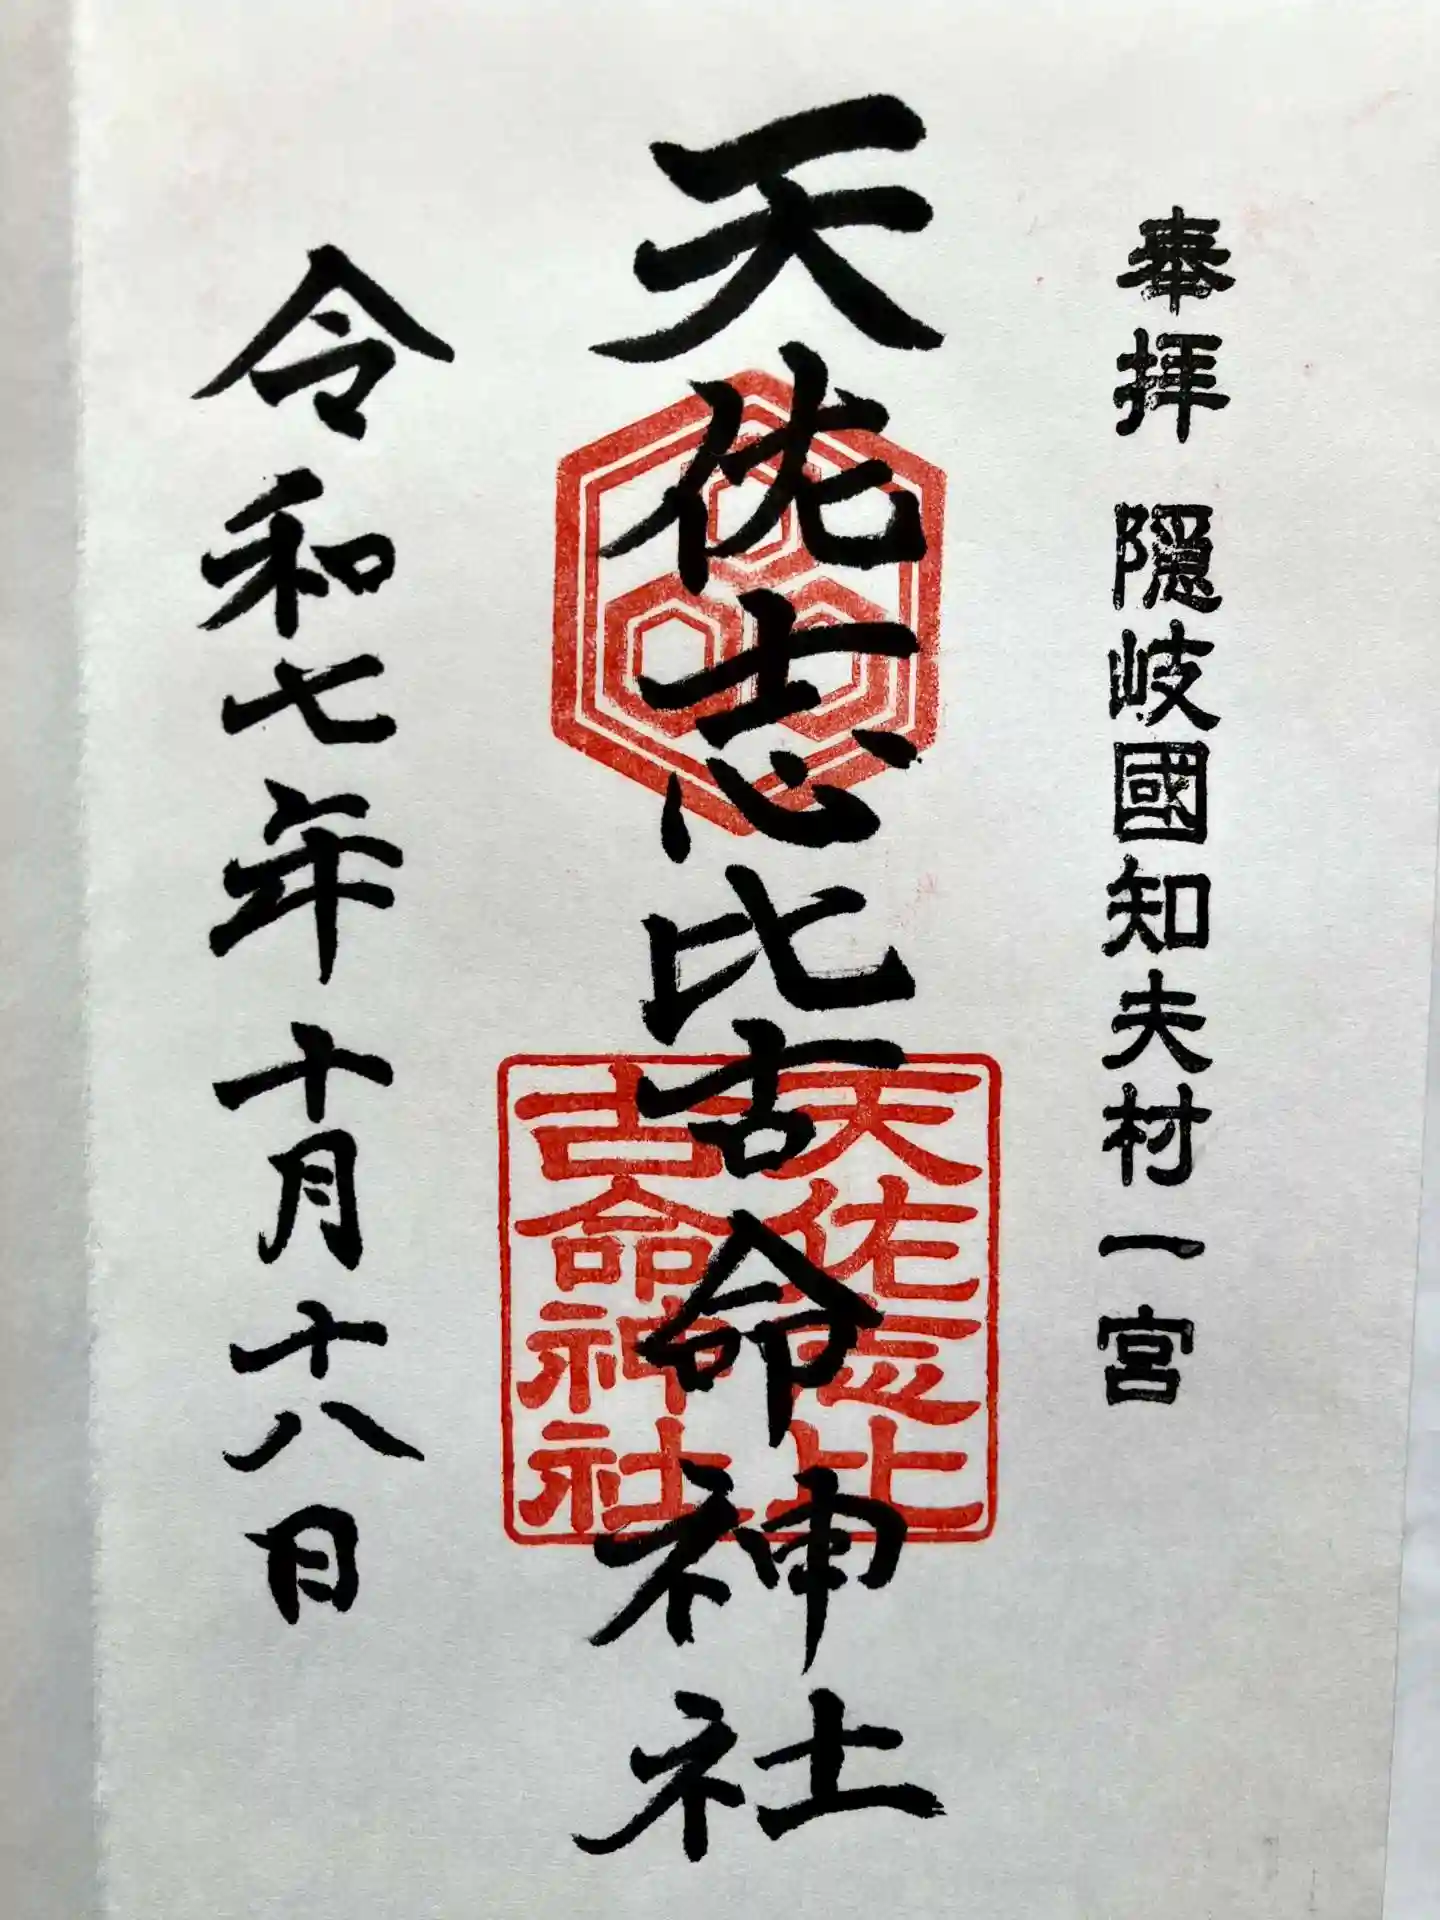 奉拝 隠岐國知夫村一宮
天佑志比古命神社
天佑志比
古命神社
令和七年十月十八日